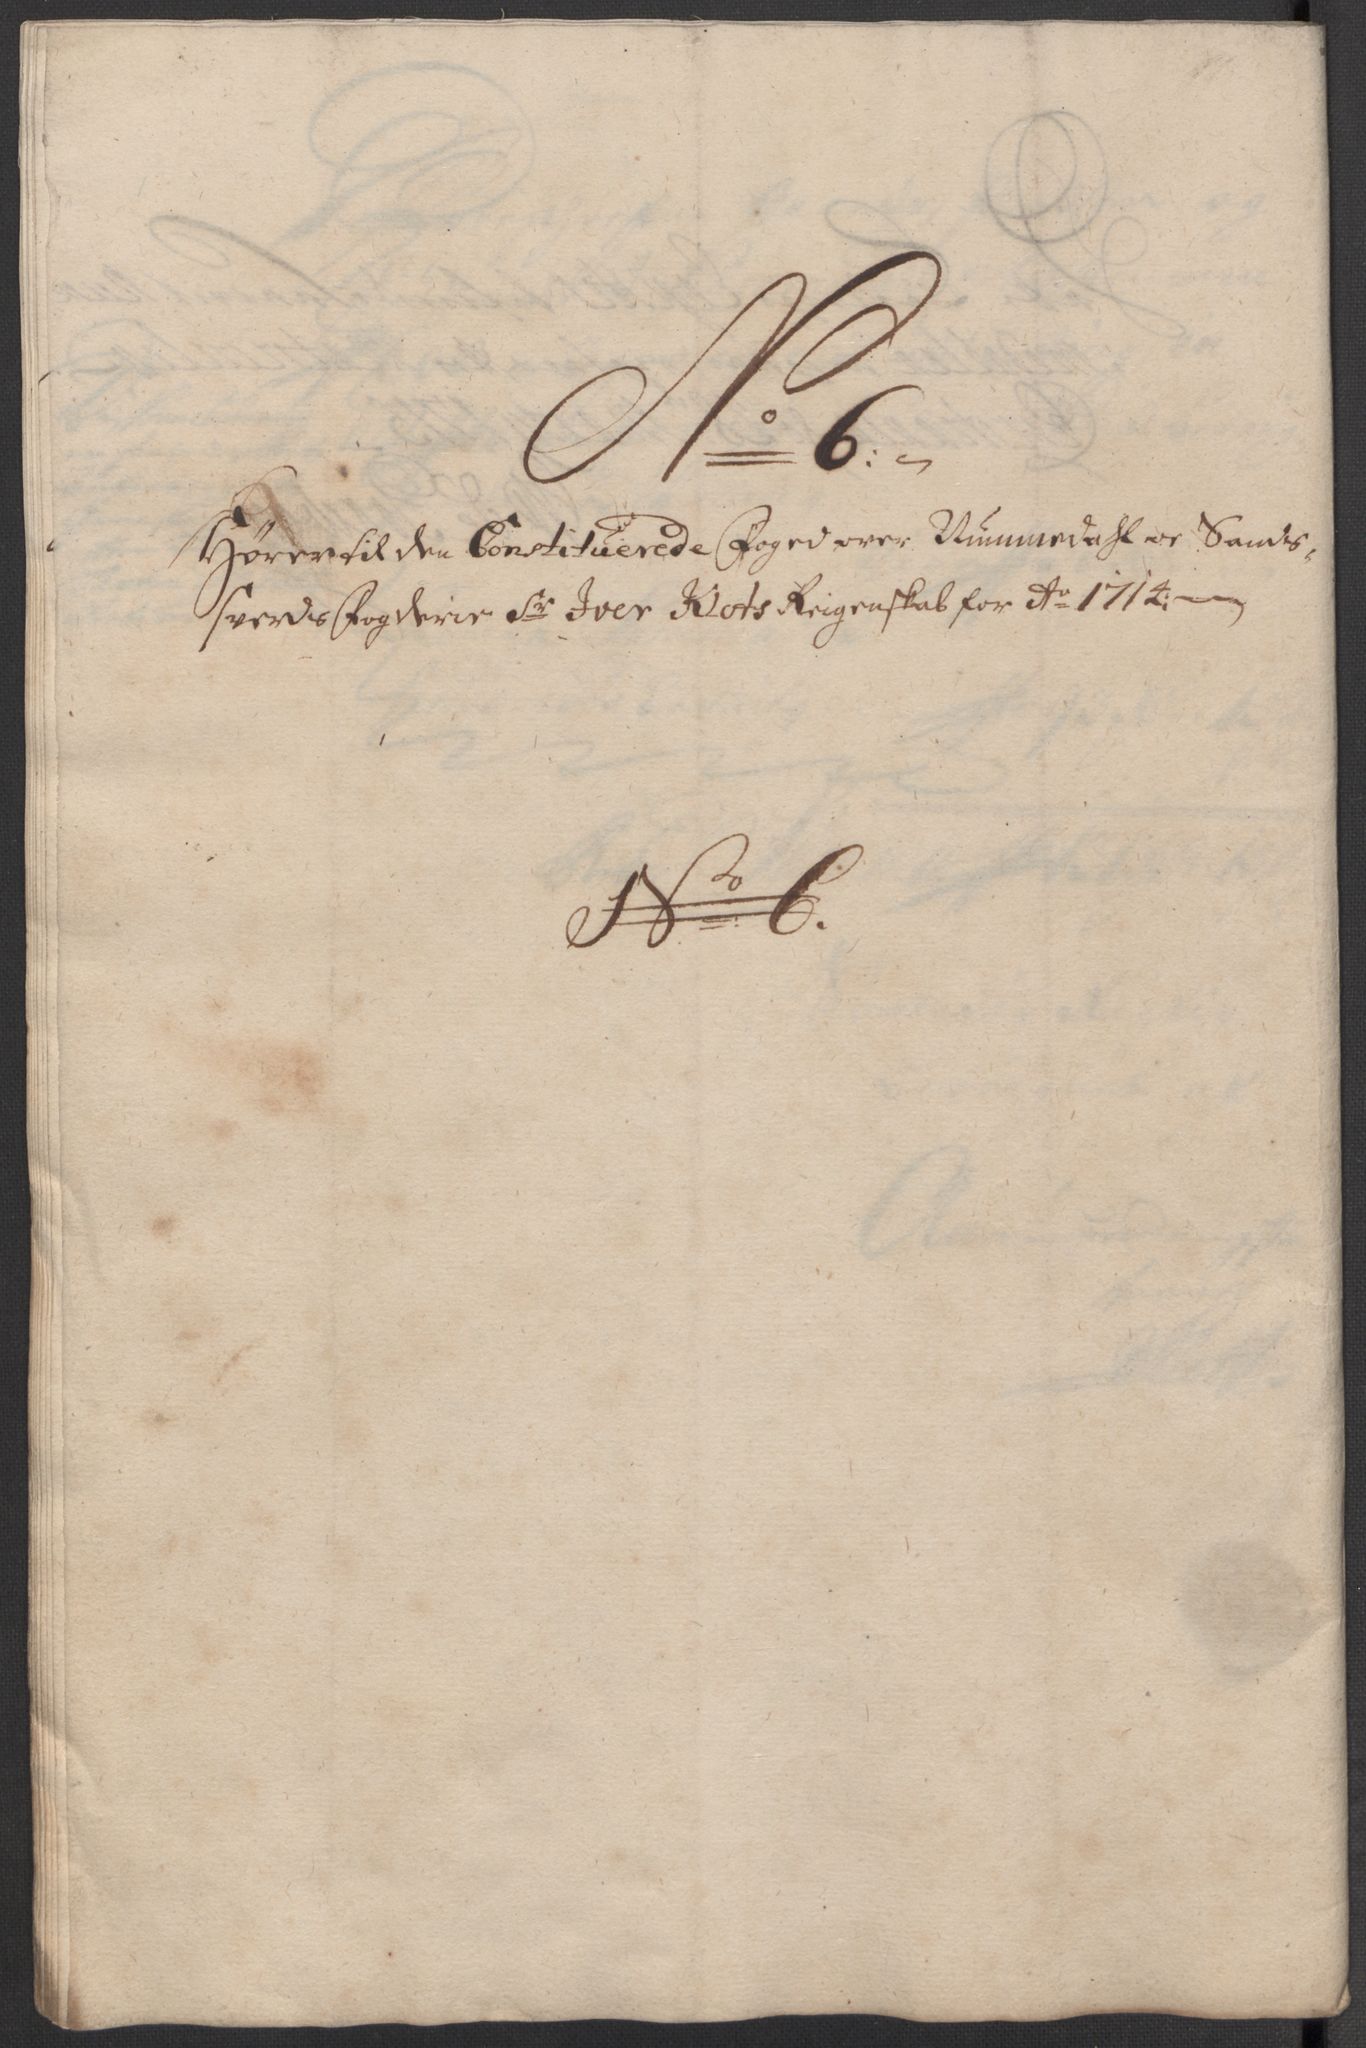 No 6:
Hører til den Constituerede Foged over Nummedahl oc Sands-
sverds Fogderie Sr Iver Klots Reigenskab for Ao 1714:
No 6.